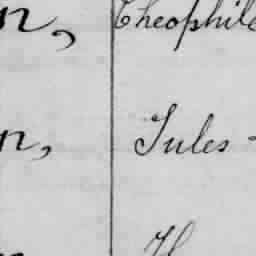 n, Theophile
n, Jules -